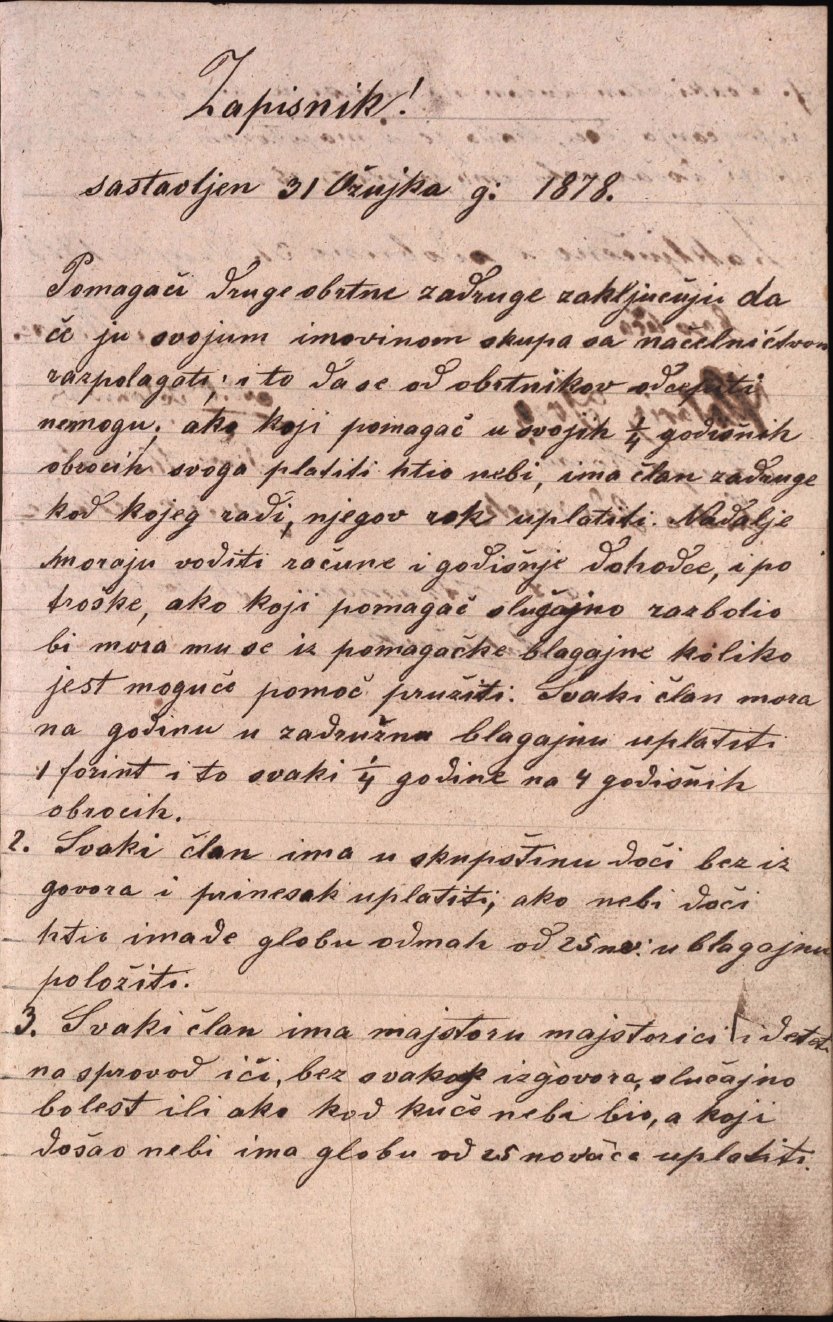 Zapisnik!
sastavljen 31 Ožujka g: 1878.
Pomagači druge obrtne zadruge zaključuju da
če ju svojum imovinom skupa sa načelničtvom
razpolagati; i to da se od obrtnikov odcepiti
nemogu; ako koji pomagač u svojih ¼ godišnih
obrocih svoga platiti htio nebi, ima član zadruge
kod kojeg radi, njegov rok uplatiti. Nadalje
moraju voditi račune i godišnje dohodce, i po
troške, ako koji pomagač slučajno razbolio
bi mora mu se iz pomagačke blagajne koliko
jest moguče pomoč pružiti. Svaki član mora
na godinu u zadružnu blagajnu uplatiti
1 forint i to svaki ¼ godine na 4 godišnih
obrocih.
2. Svaki član ima u skupštinu doči bez iz
govora i prinesak uplatiti, ako nebi doči
htio imade globu odmah od 25 nov: u blagajnu
položiti.
3. Svaki član ima majstoru majstorici i detetu
na sprovod iči, bez svakog izgovora, slučajno
bolest ili ako kod kuče nebi bio, a koji
došao nebi ima globu od 25 novača uplatiti.